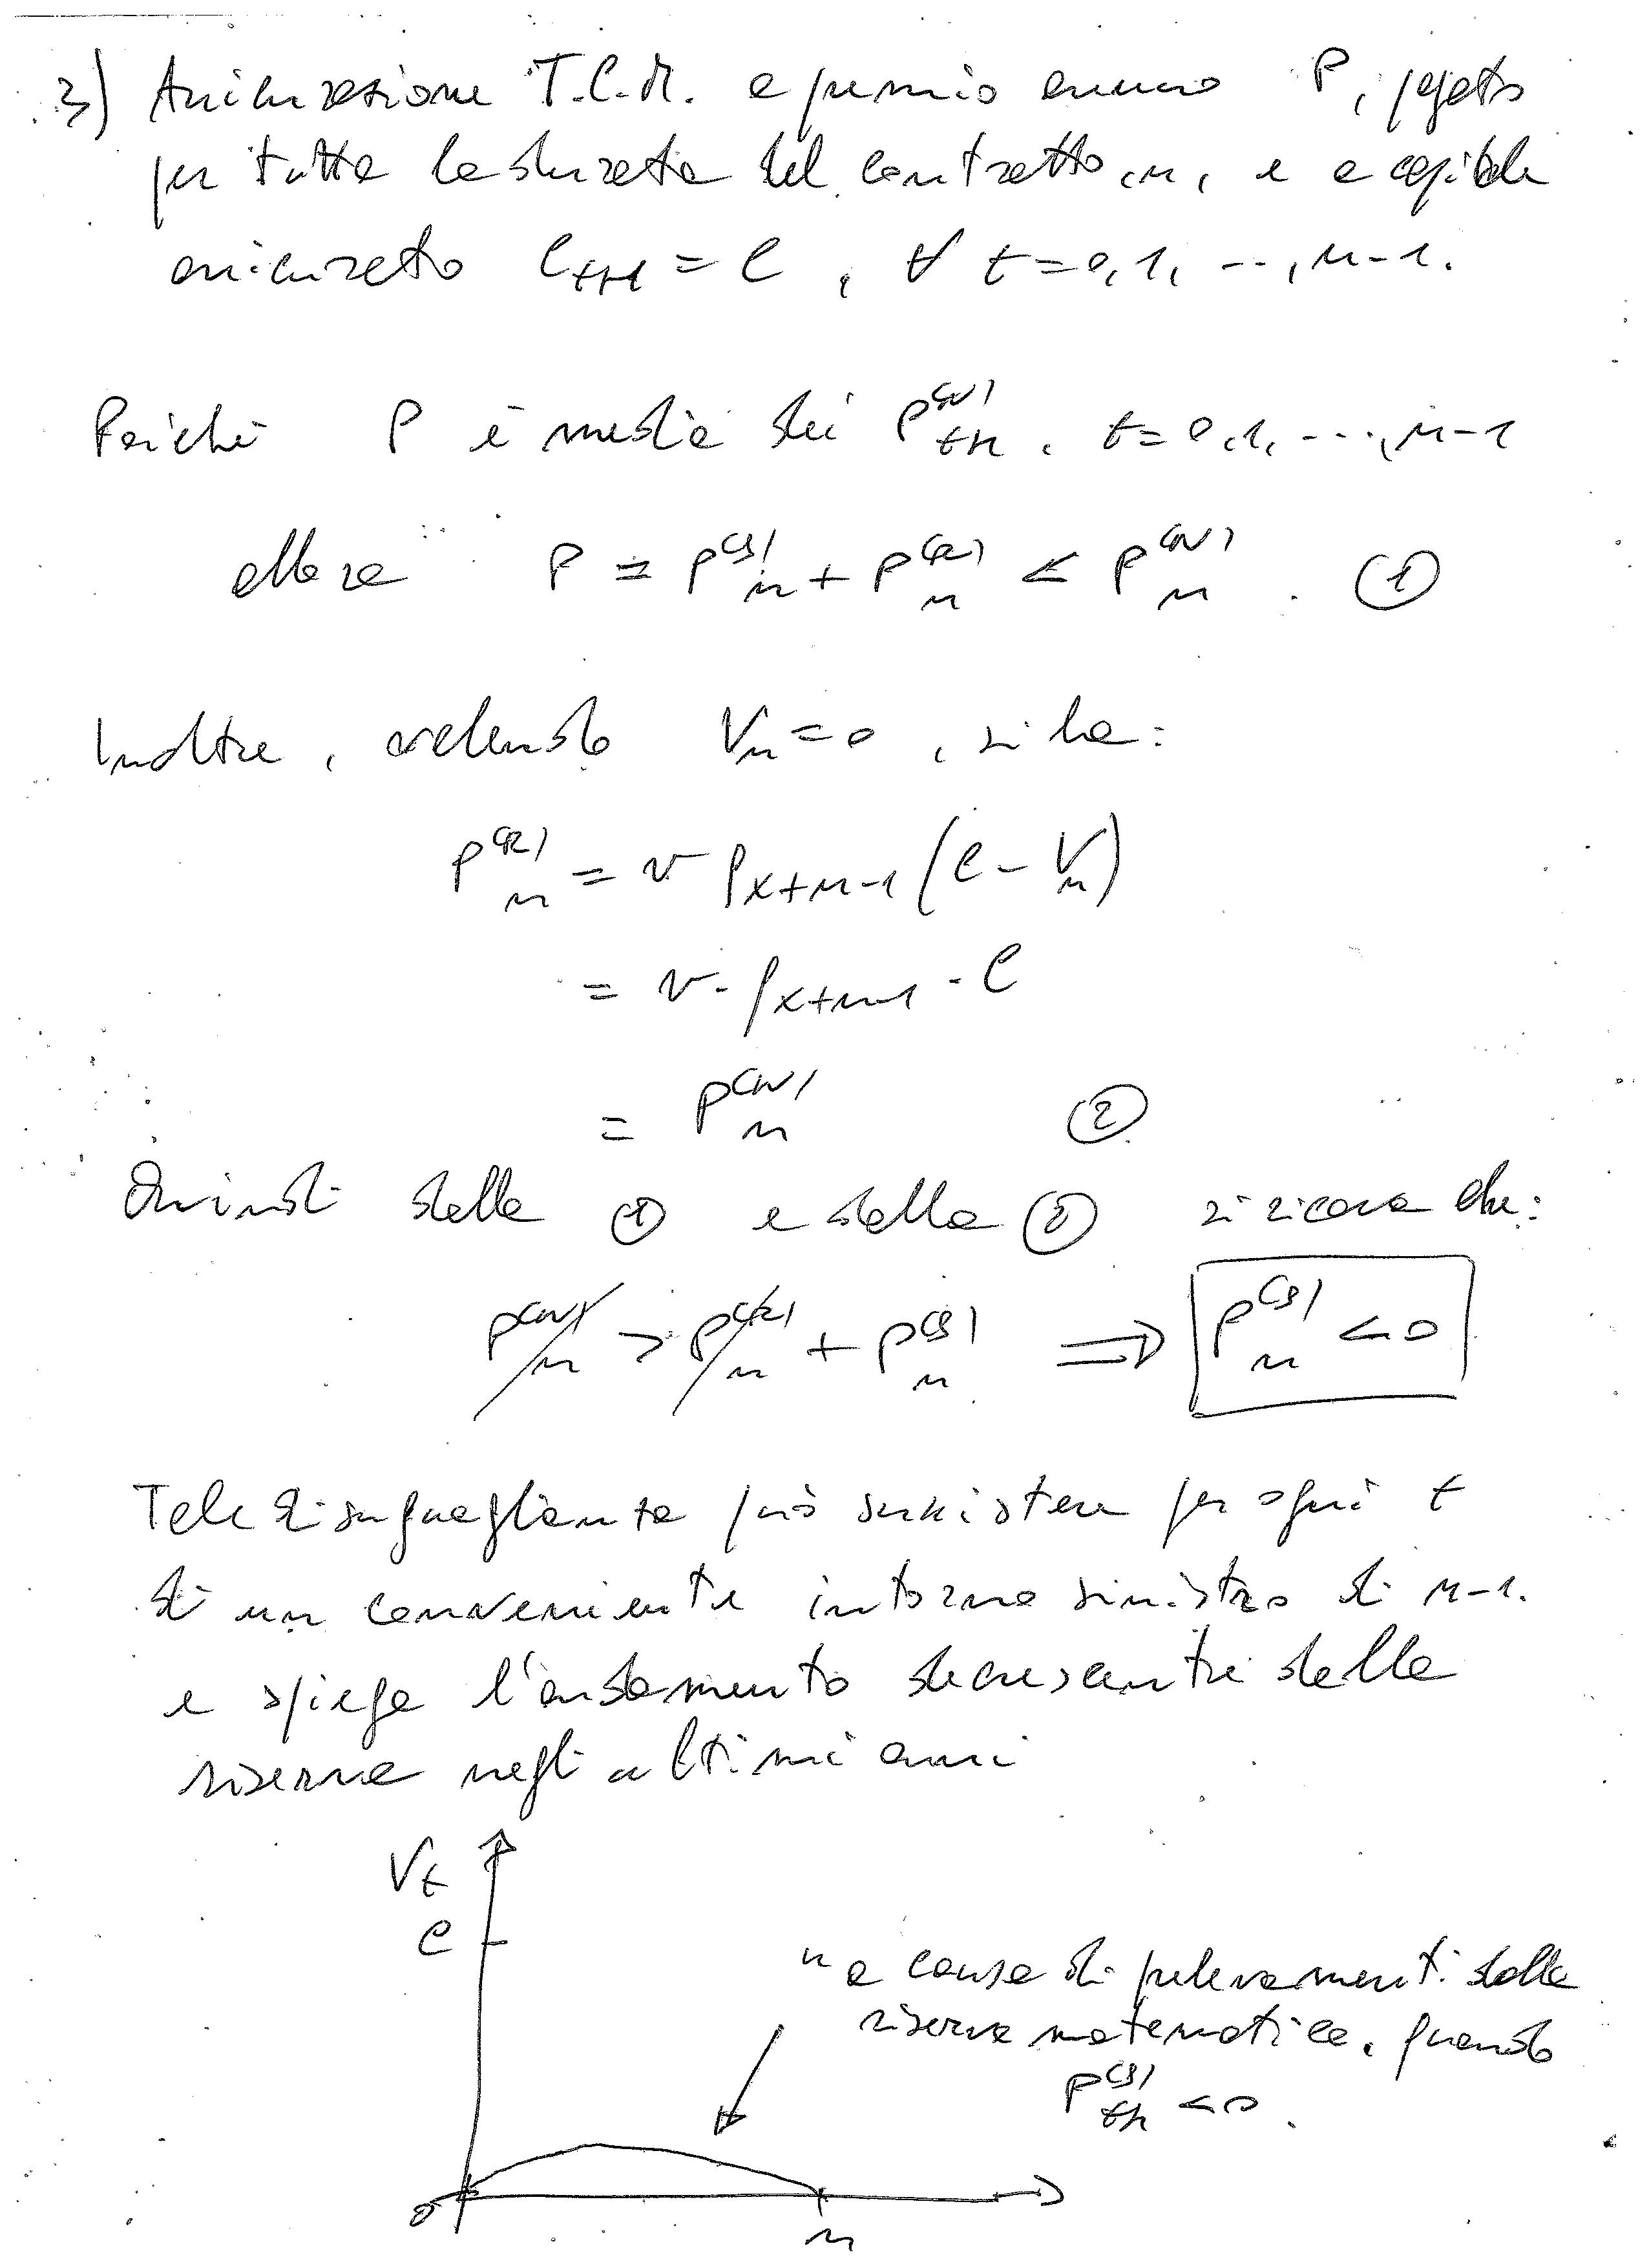 3) Assicurazione T.C.M. a premio annuo P, pagato
per tutta la durata del contratto, n, e a capitale
assicurato C_{t+1} = C, ∀ t=0,1, ..., n-1.
Poiché P è media dei P^{(N)}_{t+1}, t=0,1, ..., n-1
allora P = P^{(S)}_n + P^{(R)}_n < P^{(N)}_n. ①
Inoltre, valendo V_n=0, si ha:
P^{(R)}_n = v q_{x+n-1} (C - V_n)
= v · q_{x+n-1} · C
= P^{(N)}_n ②
Quindi dalla ① e dalla ② si ricava che:
P^{(N)}_n > P^{(R)}_n + P^{(S)}_n ⟹ P^{(S)}_n < 0
Tale disuguaglianza può sussistere per ogni t
di un conveniente intorno sinistro di n-1.
e spiega l'andamento decrescente della
riserva negli ultimi anni
V_t
C
" a causa di prelevamenti dalla
riserva matematica, quando
P^{(S)}_{t+1} <0.
0
n